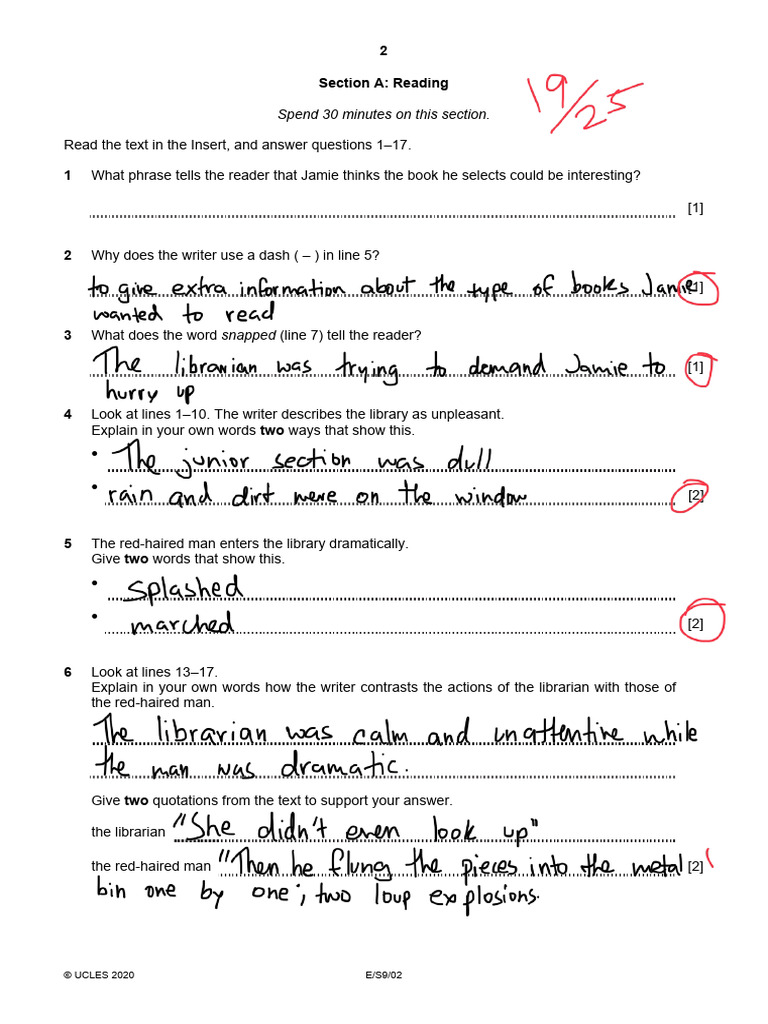 2
Section A: Reading
19/25
Spend 30 minutes on this section.
Read the text in the Insert, and answer questions 1–17.
1 What phrase tells the reader that Jamie thinks the book he selects could be interesting?
[1]
2 Why does the writer use a dash ( – ) in line 5?
to give extra information about the type of books Jamie [1]
wanted to read
3 What does the word snapped (line 7) tell the reader?
The librarian was trying to demand Jamie to [1]
hurry up
4 Look at lines 1–10. The writer describes the library as unpleasant.
Explain in your own words two ways that show this.
• The junior section was dull
• rain and dirt were on the window [2]
5 The red-haired man enters the library dramatically.
Give two words that show this.
• splashed
• marched [2]
6 Look at lines 13–17.
Explain in your own words how the writer contrasts the actions of the librarian with those of
the red-haired man.
The librarian was calm and unattentive while
the man was dramatic.
Give two quotations from the text to support your answer.
the librarian "She didn't even look up"
the red-haired man "Then he flung the pieces into the metal [2] 1
bin one by one; two loup explosions.
© UCLES 2020 E/S9/02